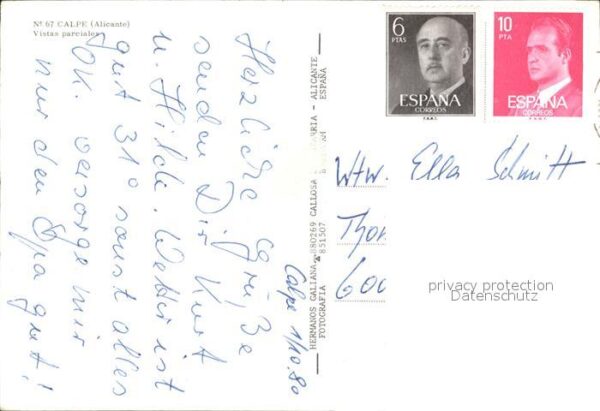 Nº 67 CALPE (Alicante)
Vistas parciales
Herzliche Grüße
senden Dir Kurt
u. Hilde. Wetter ist
gut 31° sonst alles
OK. versorge mir
nur den Opa gut!
Calpe 1/10.80
HERMANOS GALIANA - 880269 CALLOSA - ALICANTE
FOTOGRAFIA 851507 ESPAÑA
6
PTAS
ESPAÑA
CORREOS
F.N.M.T.
10
PTA
ESPAÑA
CORREOS
F.N.M.T.
Wtw. Ella Schmitt
Thom
600
privacy protection
Datenschutz